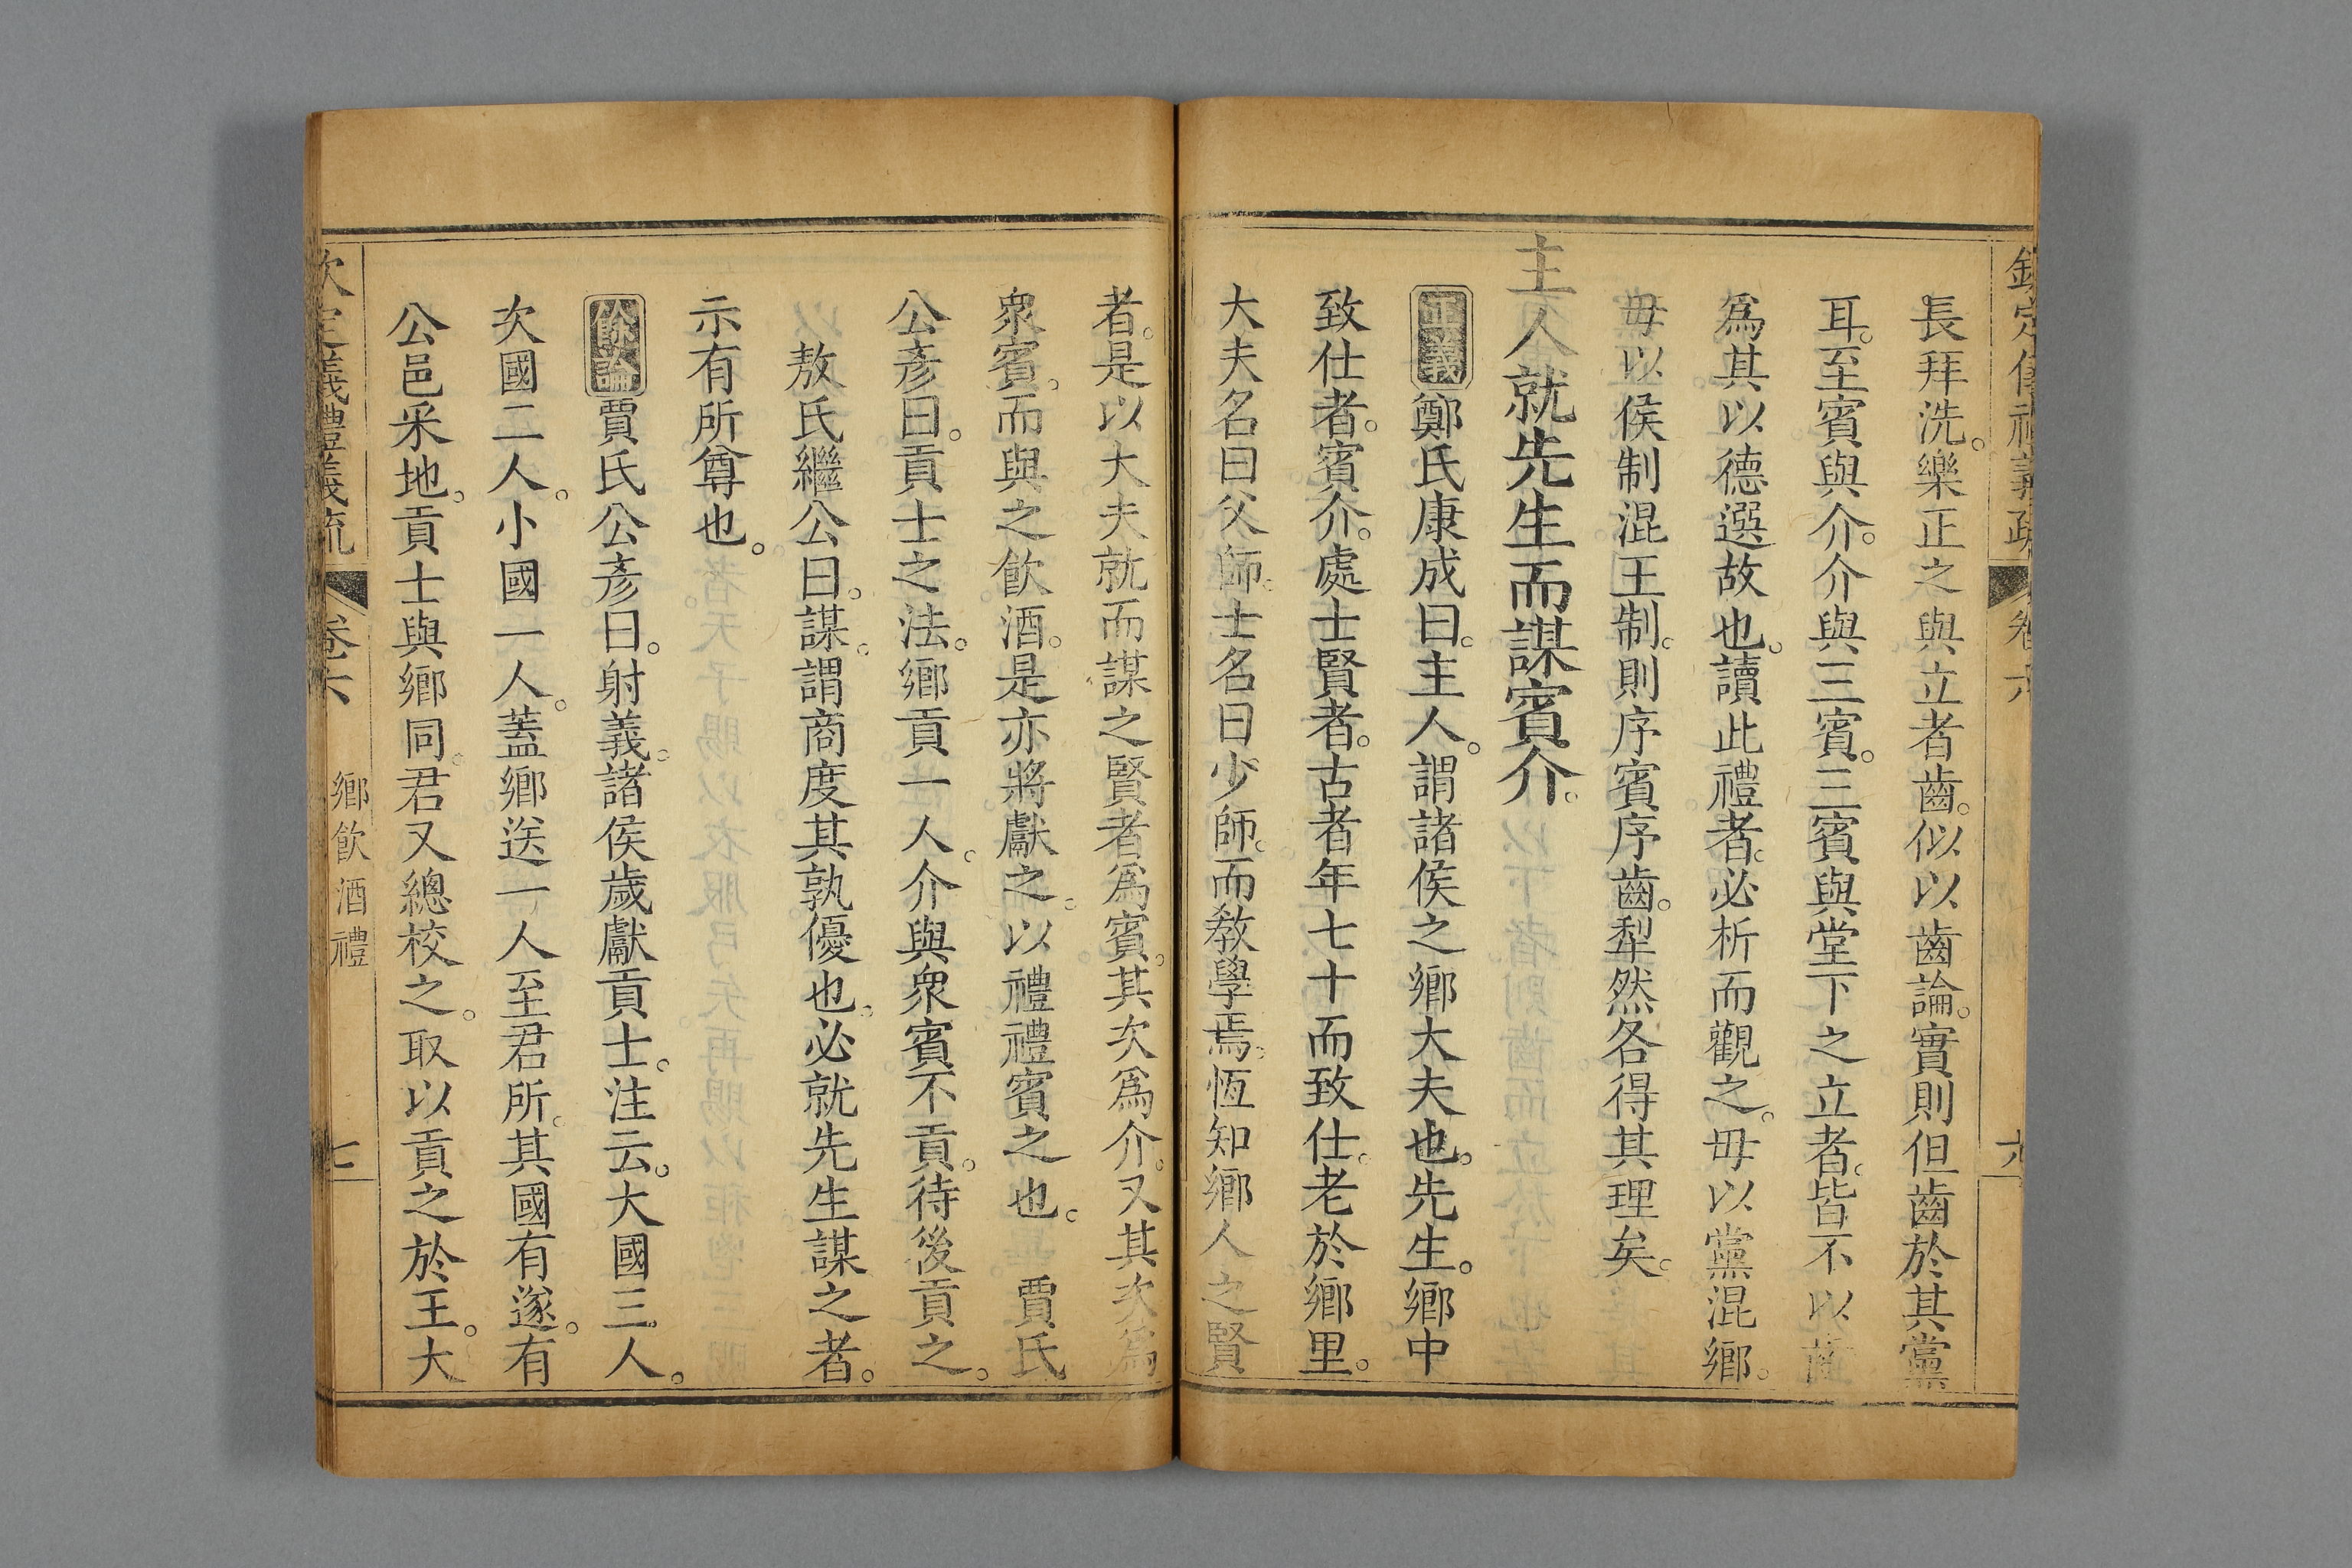 欽定儀禮義疏 卷六 六
長拜洗。樂正之與立者齒。似以齒論。實則但齒於其黨
耳。至賓與介。介與三賓。三賓與堂下之立者。皆不以齒
爲其以德選故也。讀此禮者。必析而觀之。毋以黨混鄉。
毋以侯制混王制。則序賓序齒。犁然各得其理矣。
主人就先生而謀賓介。
正義 鄭氏康成曰。主人。謂諸侯之鄉大夫也。先生。鄉中
致仕者。賓介。處士賢者。古者年七十而致仕。老於鄉里。
大夫名曰父師。士名曰少師。而敎學焉。恆知鄉人之賢
者。是以大夫就而謀之賢者爲賓。其次爲介。又其次爲
衆賓。而與之飮酒。是亦將獻之。以禮禮賓之也。 賈氏
公彥曰。貢士之法。鄉貢一人。介與衆賓不貢。待後貢之。
敖氏繼公曰。謀。謂商度其孰優也。必就先生謀之者。
示有所尊也。
餘論 賈氏公彥曰。射義。諸侯歲獻貢士。注云。大國三人。
次國二人。小國一人。蓋鄉送一人至君所。其國有遂。有
公邑采地。貢士與鄉同。君又總校之。取以貢之於王。大
欽定儀禮義疏 卷六 鄉飮酒禮 七